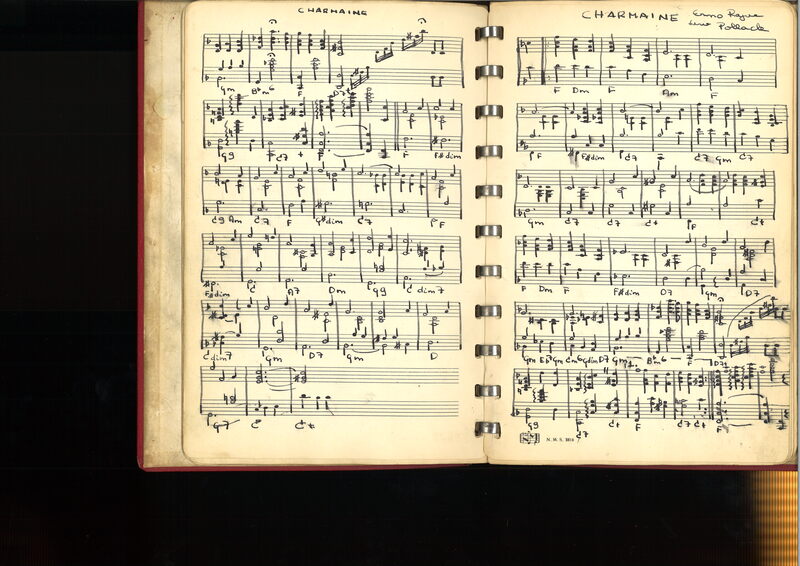 CHARMAINE
Gm Bbm6 F D7
G9 C7 + F F F#dim
C9 Am C7 F G#dim C7 F
F#dim C A7 Dm G9 C dim7
Cdim7 Gm D7 Gm D
G7 C C+
CHARMAINE Erno Rapee
Lew Pollack
F Dm F Am F
F F#dim C7 C7 Gm C7
Gm C7 C+ F C+
F Dm F F#dim D7 Gm D7
Gm Eb Gm Cm6 Gdim D7 Gm Bbm6 F D7
G9 C7 C+ F C7 C+ F
N. M. S.